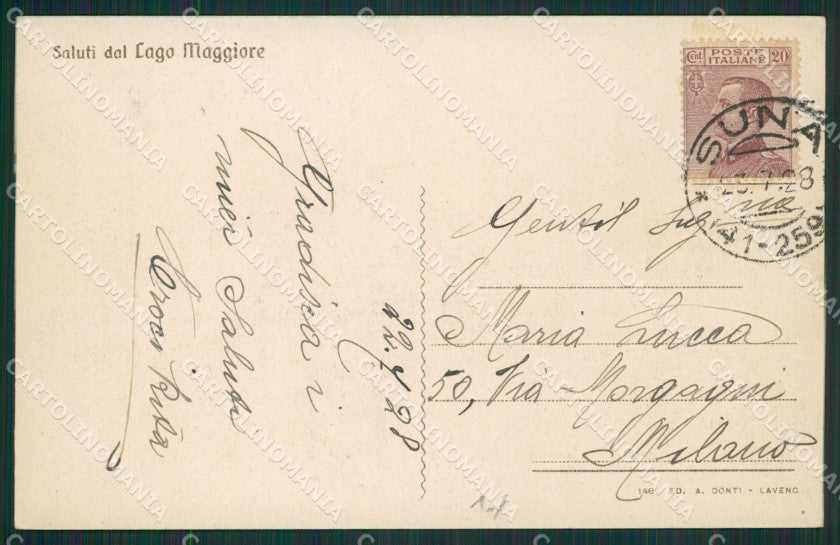 Saluti dal Lago Maggiore
Cent POSTE ITALIANE 20
SUNA
23.7.28
41-259
Gradisca i
miei Saluti
Croci Rita
22.7.28
Gentil Sig.na
Maria Lucca
50, Via Morgagni
Milano
ED. A. CONTI - LAVENO
CARTOLINOMANIA